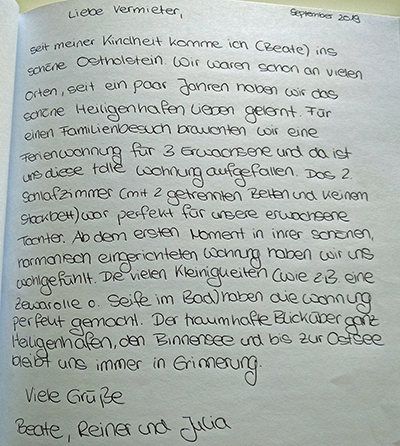 Liebe Vermieter,
September 2018
seit meiner Kindheit komme ich (Beate) ins
schöne Ostholstein. Wir waren schon an vielen
Orten, seit ein paar Jahren haben wir das
schöne Heiligenhafen lieben gelernt. Für
einen Familienbesuch brauchten wir eine
Ferienwohnung für 3 Erwachsene und da ist
uns diese tolle Wohnung aufgefallen. Das 2.
Schlafzimmer (mit 2 getrennten Betten und keinem
Stockbett) war perfekt für unsere erwachsene
Tochter. Ab dem ersten Moment in ihrer schönen,
harmonisch eingerichteten Wohnung haben wir uns
wohlgefühlt. Die vielen Kleinigkeiten (wie z.B. eine
Zewarolle o. Seife im Bad) haben die Wohnung
perfekt gemacht. Der traumhafte Blick über ganz
Heiligenhafen, den Binnensee und bis zur Ostsee
bleibt uns immer in Erinnerung.
Viele Grüße
Beate, Reiner und Julia